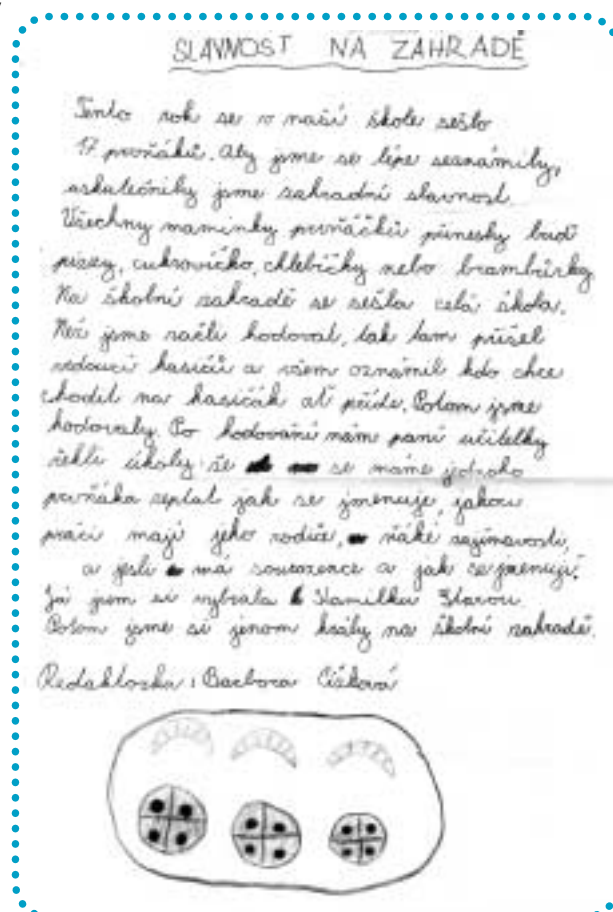 SLAVNOST NA ZAHRADĚ
Tento rok se v naší škole sešlo
17 prvňáků. Aby jsme se lépe seznámily,
uskutečnily jsme zahradní slavnost.
Všechny maminky prvňáčků přinesly buď
pizzy, cukrovíčko, chlebíčky nebo brambůrky
Na školní zahradě se sešla celá škola.
Než jsme začli hodovat, tak tam přišel
vedoucí hasičů a všem oznámil kdo chce
chodit na hasičák ať příde. Potom jsme
hodovaly. Po hodování nám paní učitelky
řekli úkoly: že se máme jednoho
prvňáka zeptat jak se jmenuje, jakou
práci mají jeho rodiče, ňáké zajímavosti,
a jesli má sourozence a jak se jmenují.
Já jsem si vybrala Kamilku
Potom jsme si jenom hrály na školní zahradě.
Redaktorka: Barbora Čížková